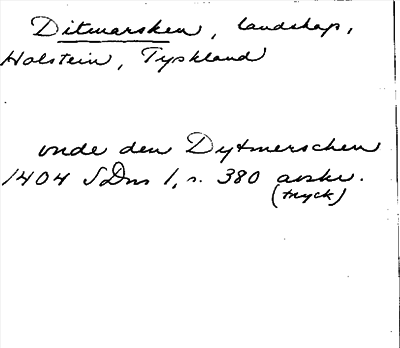 Ditmarsken, landskap,
Holstein, Tyskland
vnde den Dytmerschen
1404 SDns 1, s. 380 avskr.
(tryck)